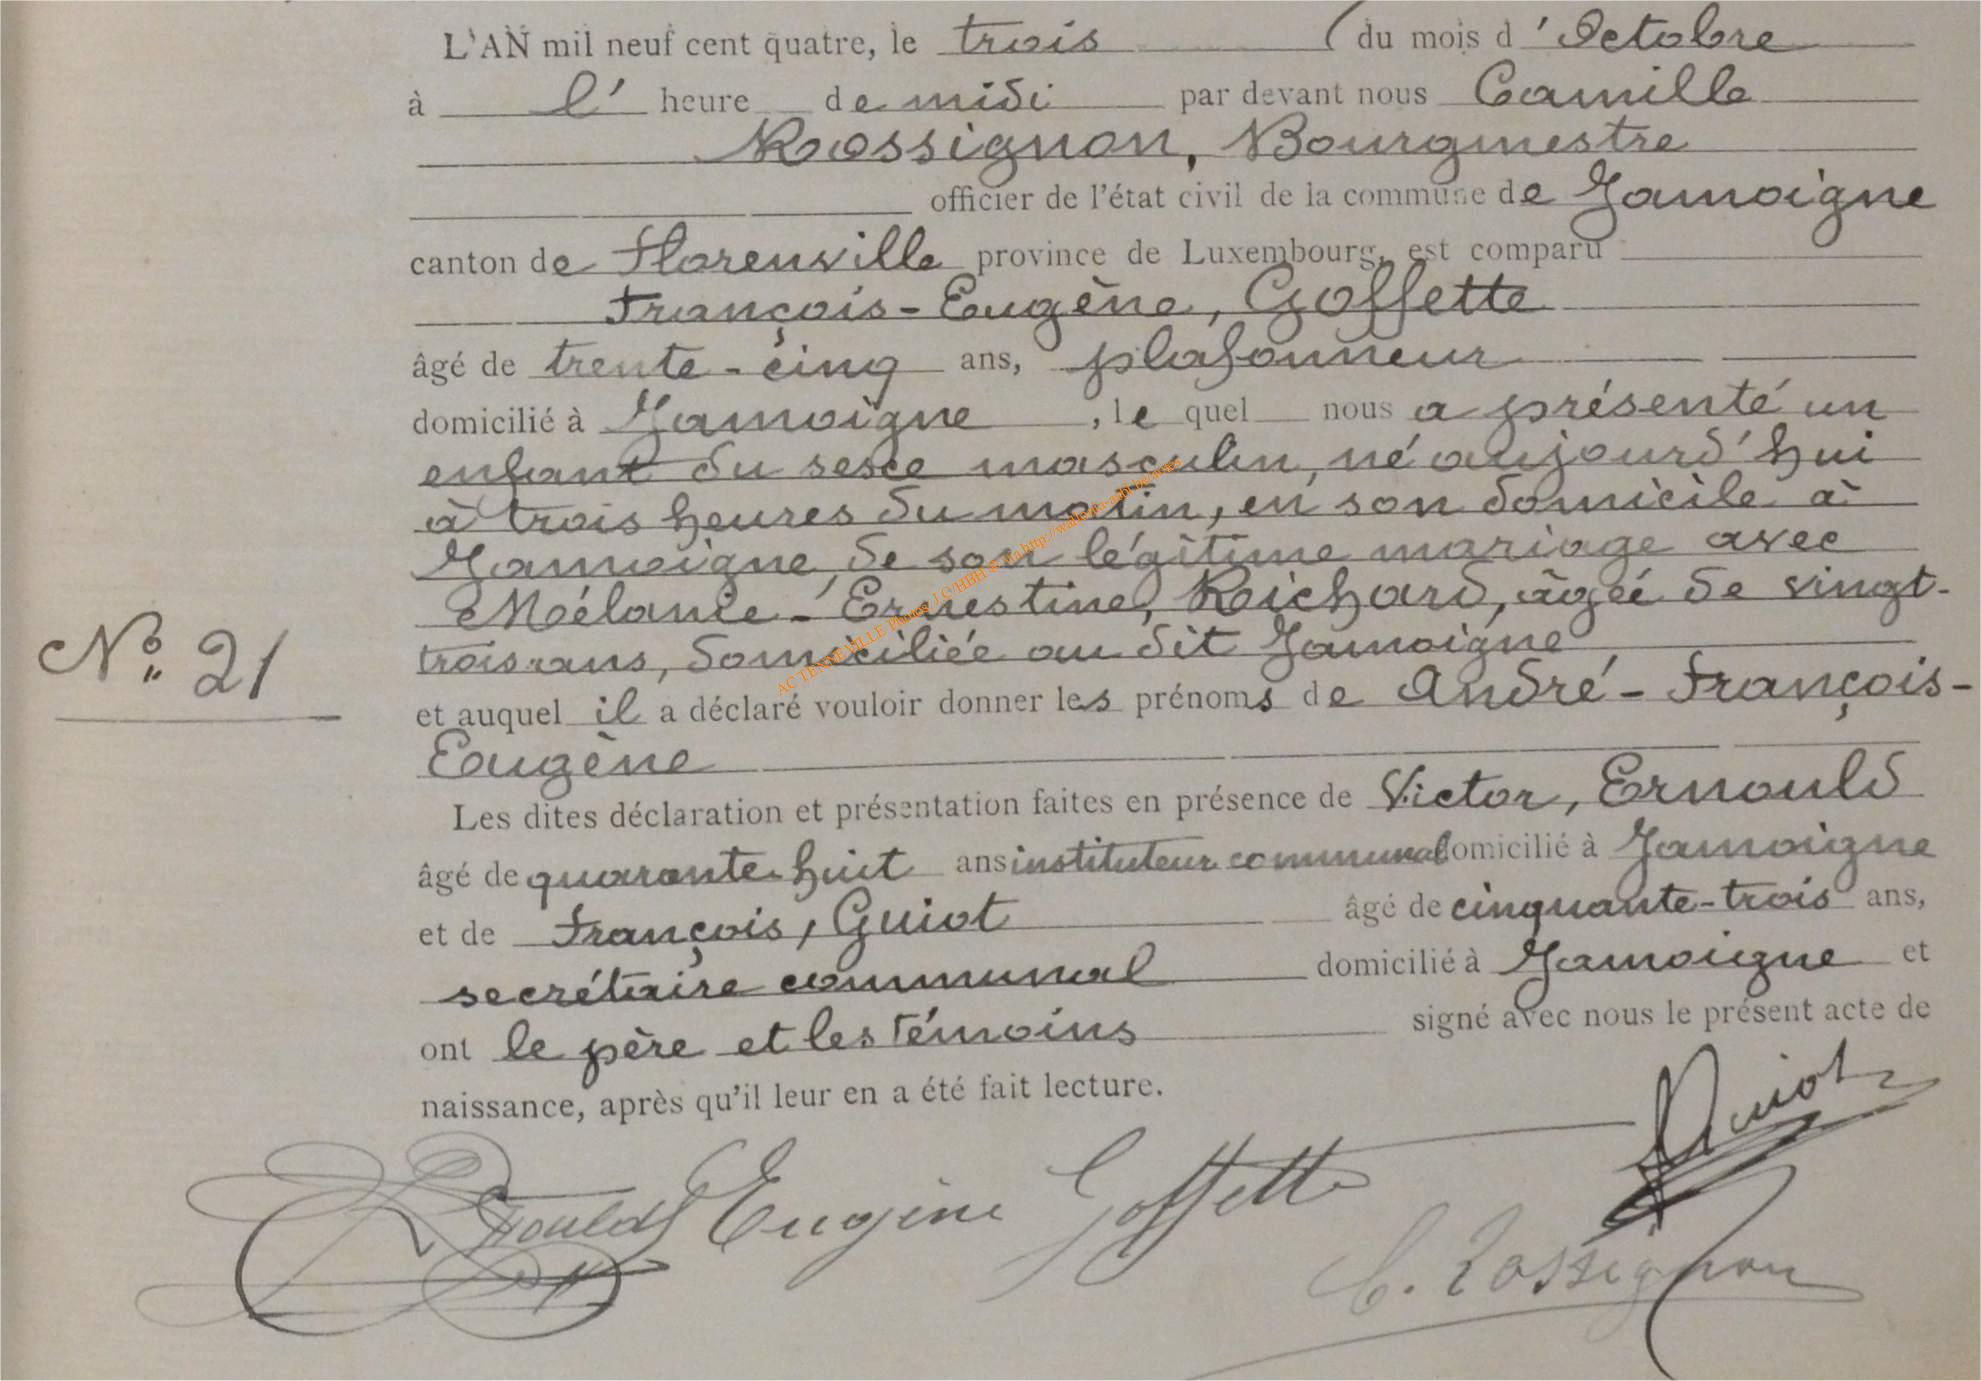 L'AN mil neuf cent quatre, le trois du mois d'Octobre
à l' heure de midi par devant nous Camille
Rossignon, Bourgmestre
officier de l'état civil de la commune de Jamoigne
canton de Florenville province de Luxembourg, est comparu
François-Eugène, Goffette
âgé de trente-cinq ans, plafonneur
domicilié à Jamoigne, le quel nous a présenté un
enfant du sexe masculin, né aujourd'hui
à trois heures du matin, en son domicile à
Jamoigne, de son légitime mariage avec
Mélanie-Ernestine, Richard, âgée de vingt-
trois ans, domiciliée au dit Jamoigne
N° 21
et auquel il a déclaré vouloir donner les prénoms de André-François-
Eugène
Les dites déclaration et présentation faites en présence de Victor, Ernould
âgé de quarante-huit ans instituteur communal domicilié à Jamoigne
et de François, Guiot âgé de cinquante-trois ans,
secrétaire communal domicilié à Jamoigne et
ont le père et les témoins signé avec nous le présent acte de
naissance, après qu'il leur en a été fait lecture.
Guiot
Ernould Eugène Goffette
C. Rossignon
AC TENNEVILLE Photos JC/HBH